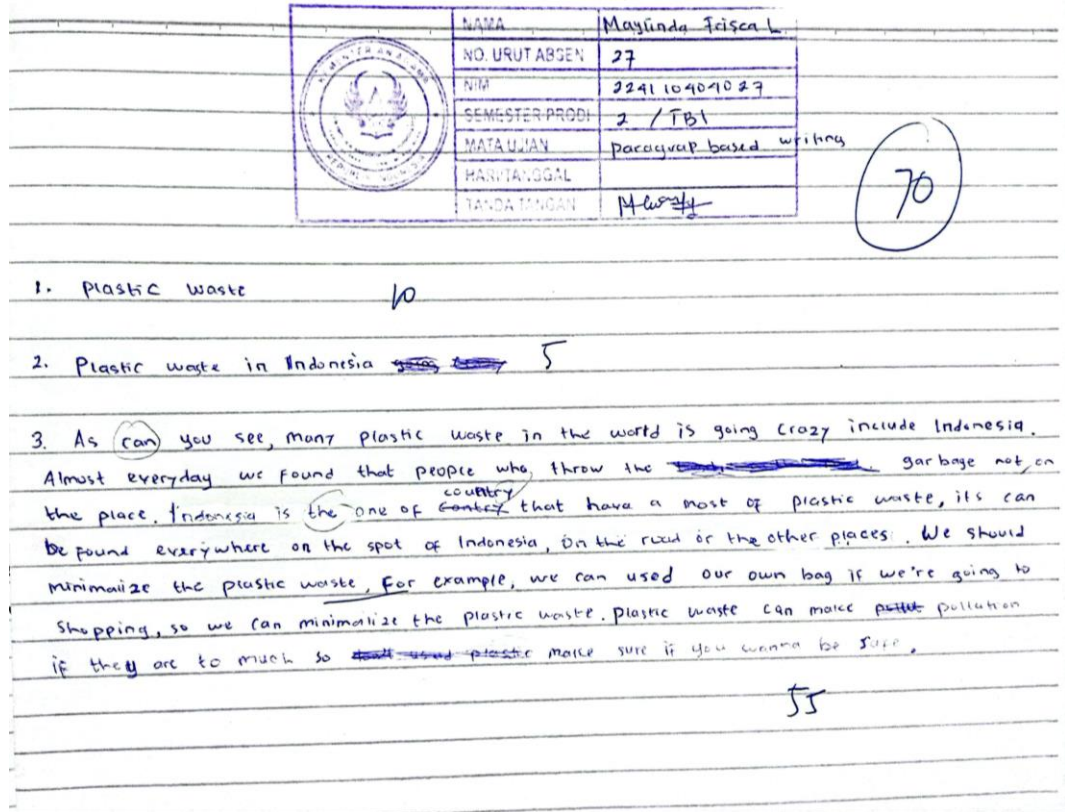 NAMA Maylinda Frisca L.
NO. URUT ABSEN 27
NIM 224110404027
SEMESTER/PRODI 2 / TBI
MATA UJIAN paragrap based writing
HARI/TANGGAL
TANDA TANGAN
KEMENTERIAN AGAMA
REPUBLIK INDONESIA
70
1. Plastic waste 10
2. Plastic waste in Indonesia 5
3. As can you see, many plastic waste in the world is going crazy include Indonesia.
Almost everyday we found that people who throw the garbage not on
country
the place. Indonesia is the one of that have a most of plastic waste, its can
be found everywhere on the spot of Indonesia, on the road or the other places. We should
minimalize the plastic waste, For example, we can used our own bag if we're going to
shopping, so we can minimalize the plastic waste. plastic waste can make pollution
if they are to much so make sure if you wanna be safe.
55